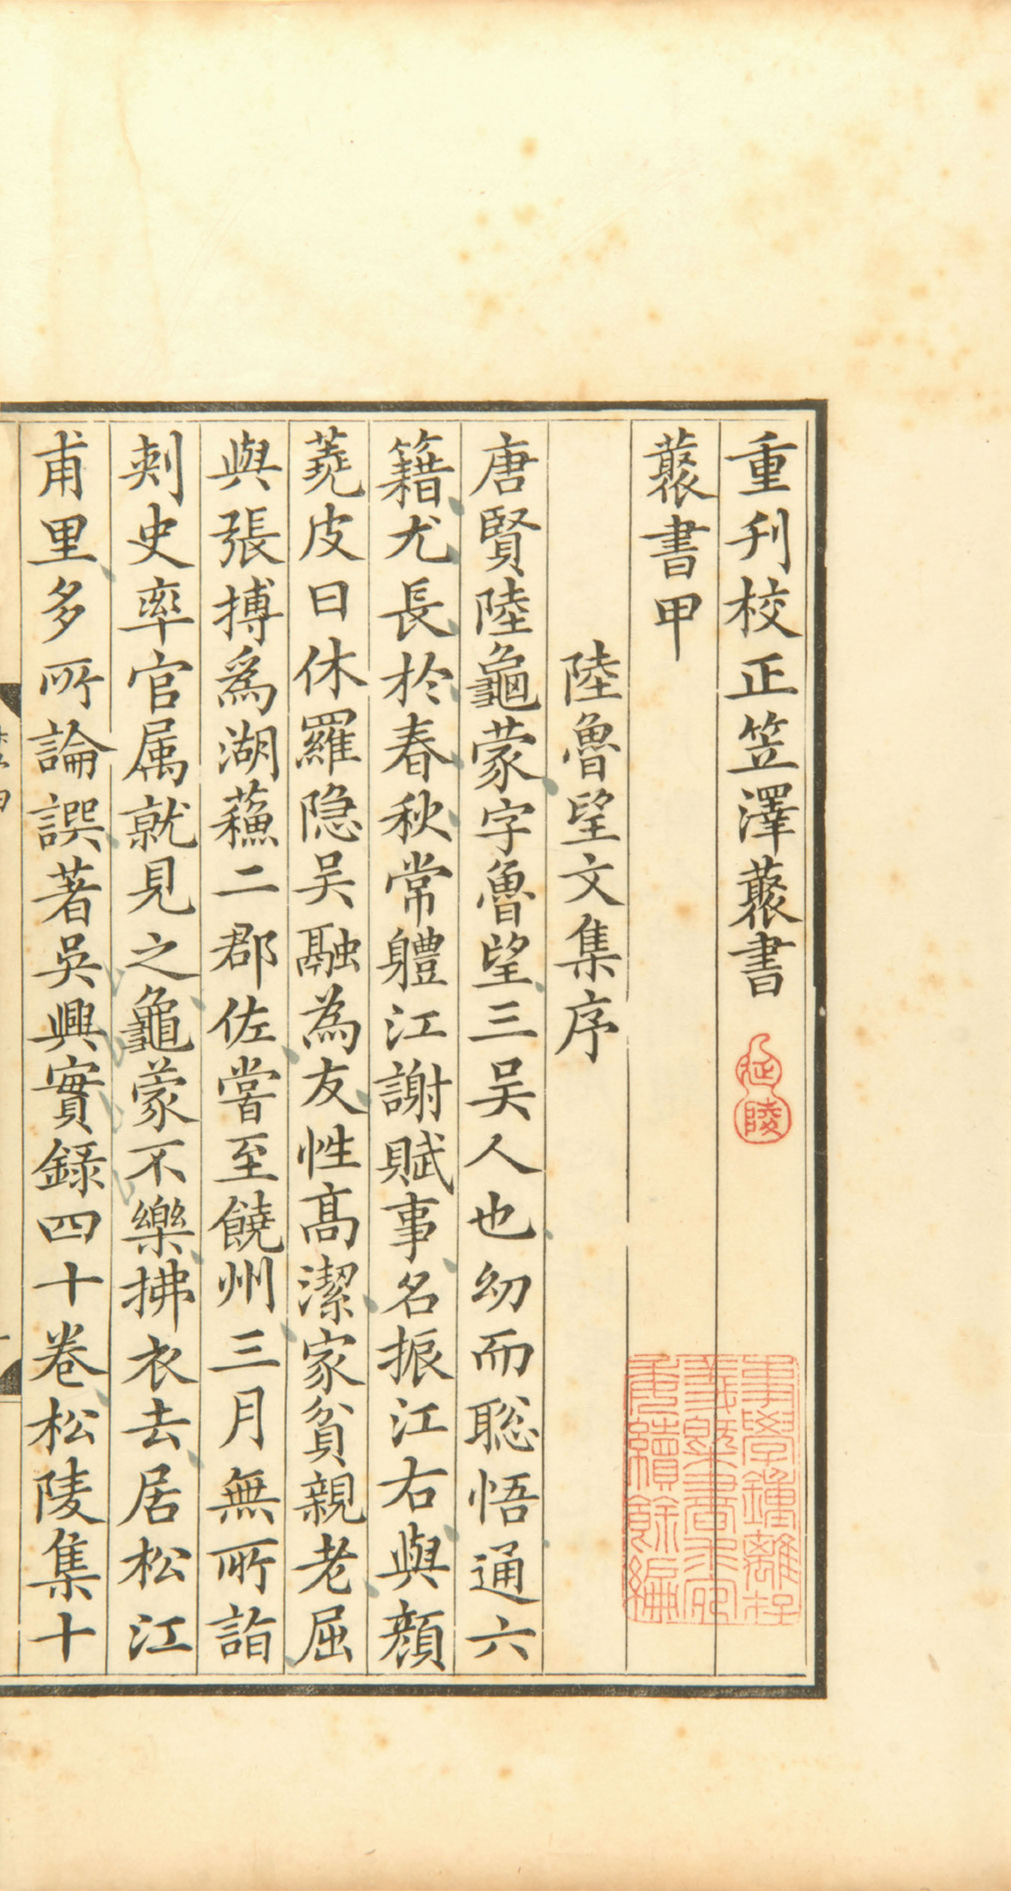 重刋校正笠澤藂書
延陵
藂書甲
陸魯望文集序
唐賢陸龜蒙字魯望三吴人也幼而聡悟通六
籍尤長於春秋常軆江謝賦事名振江右與顔
蕘皮日休羅隐吴融為友性髙潔家貧親老屈
與張搏爲湖蘓二郡佐嘗至饒州三月無所詣
刺史率官属就見之龜蒙不樂拂衣去居松江
甫里多所論譔著吳興實録四十卷松陵集十